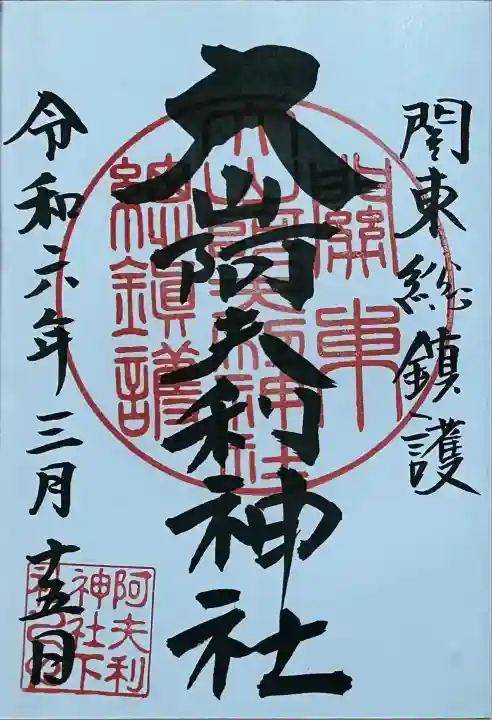 関東総鎮護
大山阿夫利神社
令和六年三月十五日
關東
大山阿夫利神社
總鎮護
阿夫利
神社下